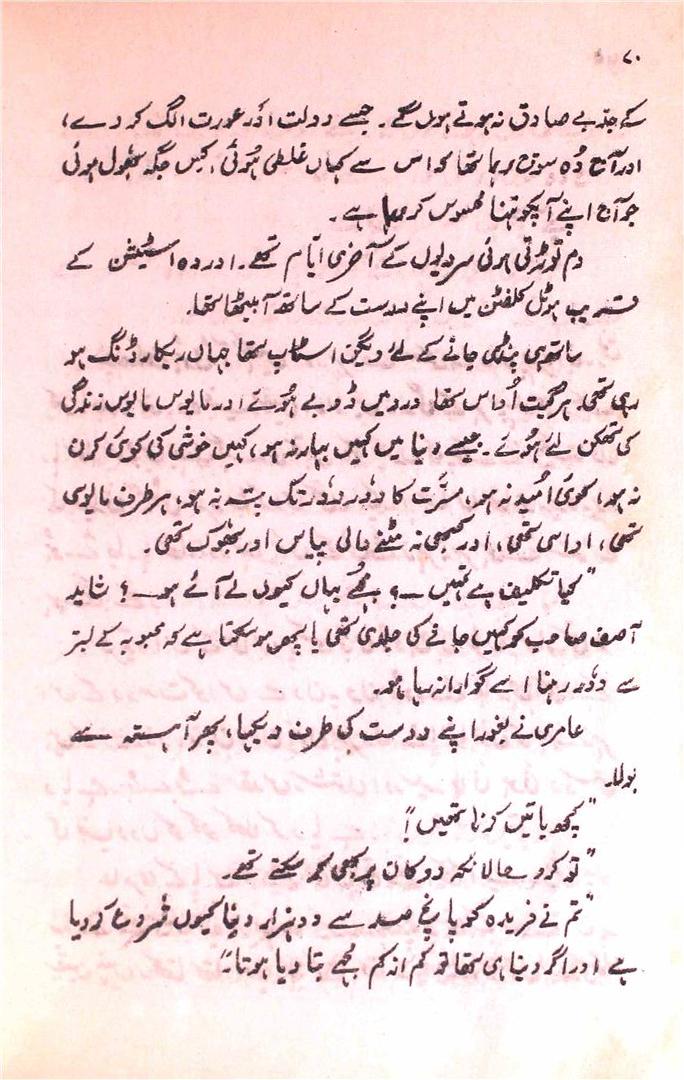 ۷۰
کے جذبے صادق نہ ہوتے ہوں گے۔ جسے دولت اور عورت الگ کر دے،
اور آج وُہ سوچ رہا تھا کہ اس سے کہاں غلطی ہُوئی، کیس جگہ بھُول ہوئی
جو آج اپنے آپکو تنہا محسوس کر رہا ہے۔
دم توڑتی ہوئی سردیوں کے آخری ایّام تھے۔ اور وہ اسٹیشن کے
قریب ہوٹل کلفٹن میں اپنے دوست کے ساتھ آ بیٹھا تھا۔
ساتھ ہی پنڈی جانے کے لئے ویگن اسٹاپ تھا جہاں ریکارڈنگ ہو
رہی تھی۔ ہر گیت اُداس تھا درد میں ڈوبے ہُوئے اور مایوس مایوس زندگی
کی تھکن لئے ہُوئے۔ جیسے دنیا میں کہیں بہار نہ ہو، کہیں خوشی کی کوئی کرن
نہ ہو، کوئی اُمید نہ ہو، مسرّت کا دُور دُور تک پتہ نہ ہو، ہر طرف مایوسی
تھی، اداسی تھی، اور کبھی نہ مٹنے والی پیاس اور بھُوک تھی۔
"کیا تکلیف ہے تمہیں ــ؟ مجھے یہاں کیوں لے آئے ہو ــ؟ شاید
آصف صاحب کو کہیں جانے کی جلدی تھی یا پھر ہو سکتا ہے کہ محبوبہ کے بستر
سے دُور رہنا اسے گوارا نہ رہا ہو۔
عامری نے بغور اپنے دوست کی طرف دیکھا، پھر آہستہ سے
بولا۔
"کچھ باتیں کرنا تھیں!"
"تو کرو حالانکہ دوکان پر بھی کہہ سکتے تھے۔
"تم نے فریدہ کو پانچ صد سے دو ہزار دینا کیوں شروع کر دیا
ہے اور اگر دینا ہی تھا تو کم از کم مجھے بتا دیا ہوتا۔"